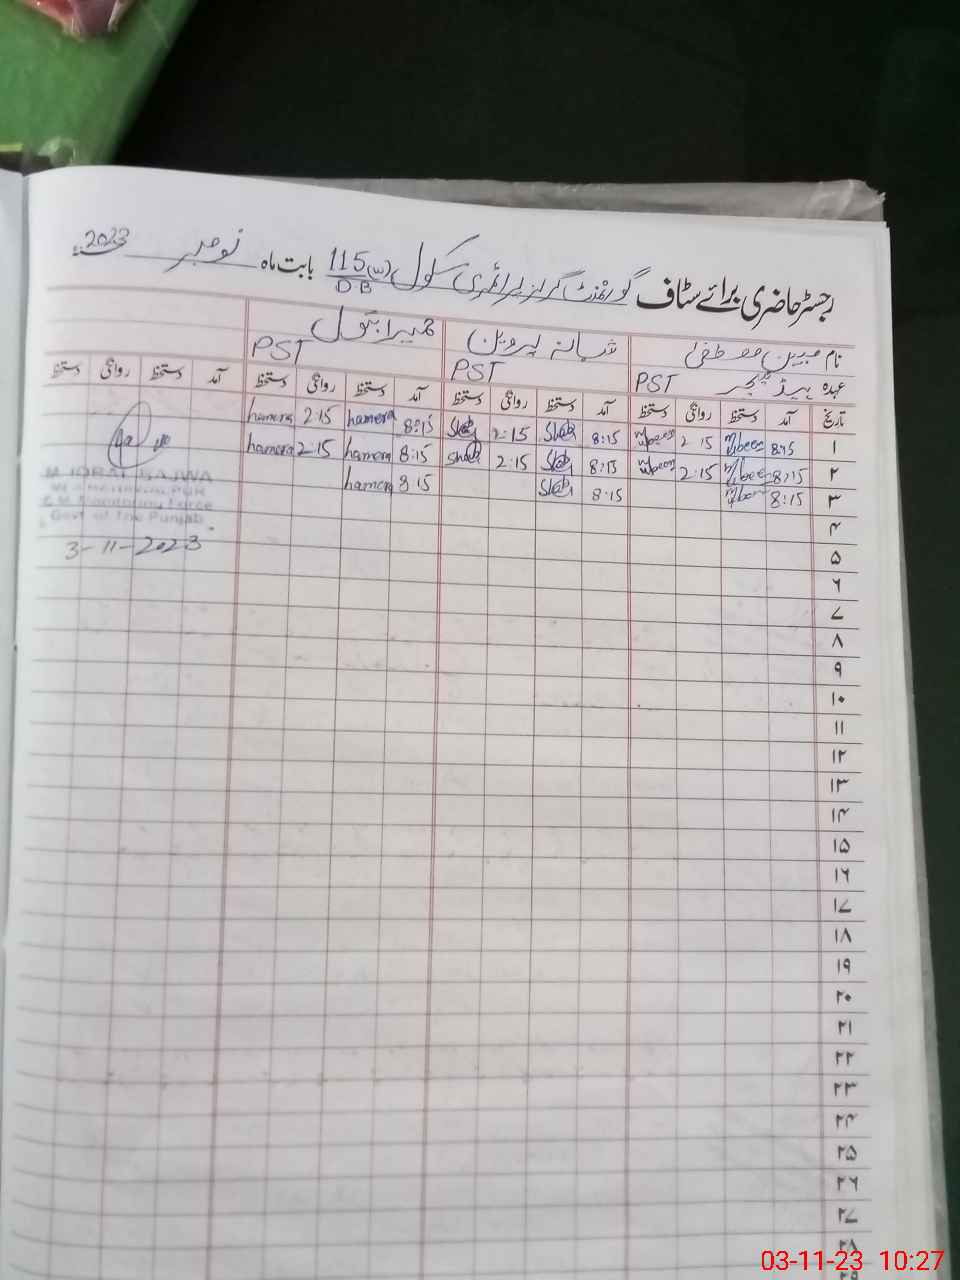 رجسٹر حاضری برائے سٹاف گورنمنٹ گرلز پرائمری سکول (س) 115 DB بابت ماہ نومبر 2023
نام مبین مصطفیٰ شبانہ پروین حمیرا بتول
عہدہ ہیڈ ٹیچر PST PST PST
تاریخ آمد دستخط روانگی دستخط آمد دستخط روانگی دستخط آمد دستخط روانگی دستخط آمد دستخط روانگی دستخط
۱ 8:15 2:15 8:15 2:15 8:15 hamera 2:15 hamera
۲ 8:15 2:15 8:15 2:15 8:15 hamera 2:15 hamera
۳ 8:15 8:15 8:15 hamera
M. IQBAL BAJWA
C.M. Monitoring Force
Govt of the Punjab
3-11-2023
۴
۵
۶
۷
۸
۹
۱۰
۱۱
۱۲
۱۳
۱۴
۱۵
۱۶
۱۷
۱۸
۱۹
۲۰
۲۱
۲۲
۲۳
۲۴
۲۵
۲۶
۲۷
۲۸
۲۹
03-11-23 10:27